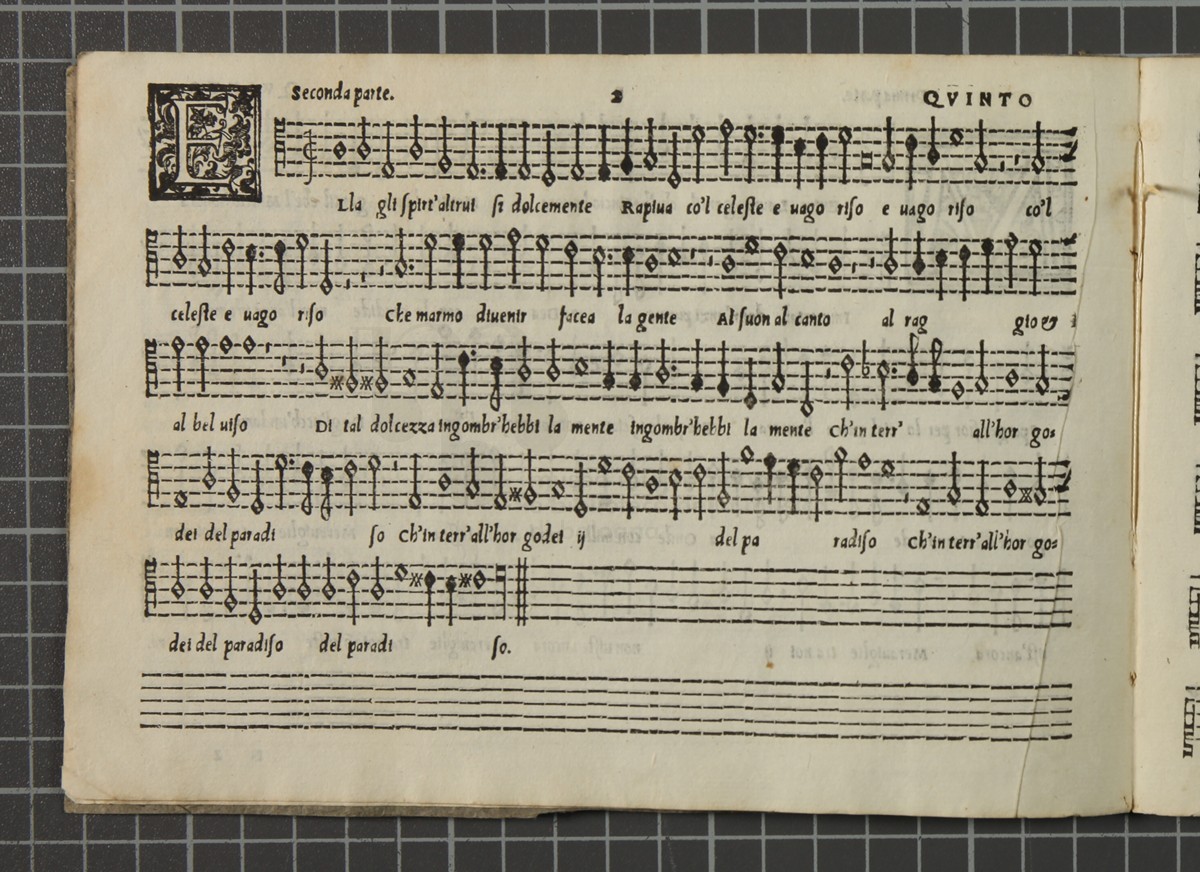 Seconda parte. 2 QVINTO
ELla gli spirt'altrui si dolcemente Rapiua co'l celeste e uago riso e uago riso co'l
celeste e uago riso Che marmo diuenir facea la gente Al suon al canto al rag gio &
al bel uiso Di tal dolcezza ingombr'hebbi la mente ingombr'hebbi la mente Ch'in terr' all'hor go=
dei del paradi so Ch'in terr'all'hor godei ij del pa radiso Ch'in terr'all'hor go=
dei del paradiso del paradi so.